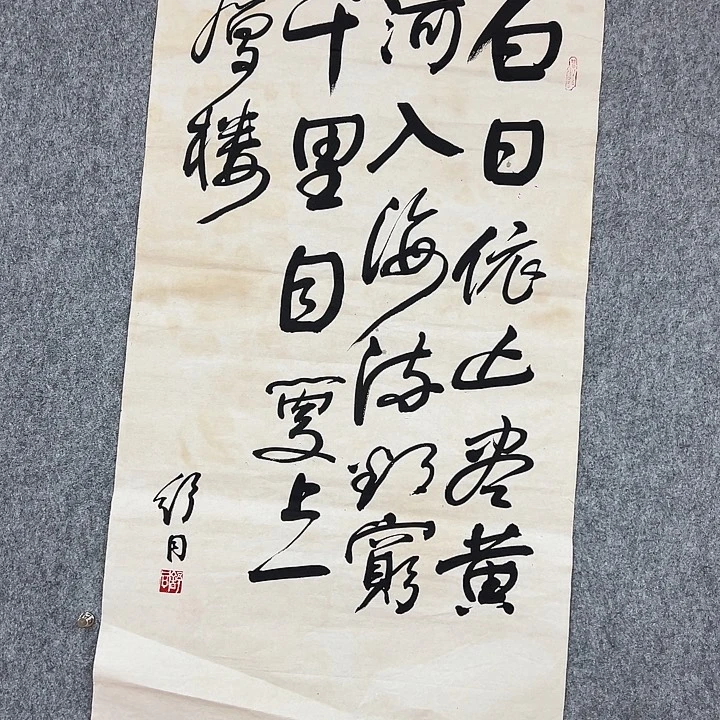 白日依山尽黄
河入海流欲窮
千里目更上一
層楼
舒同